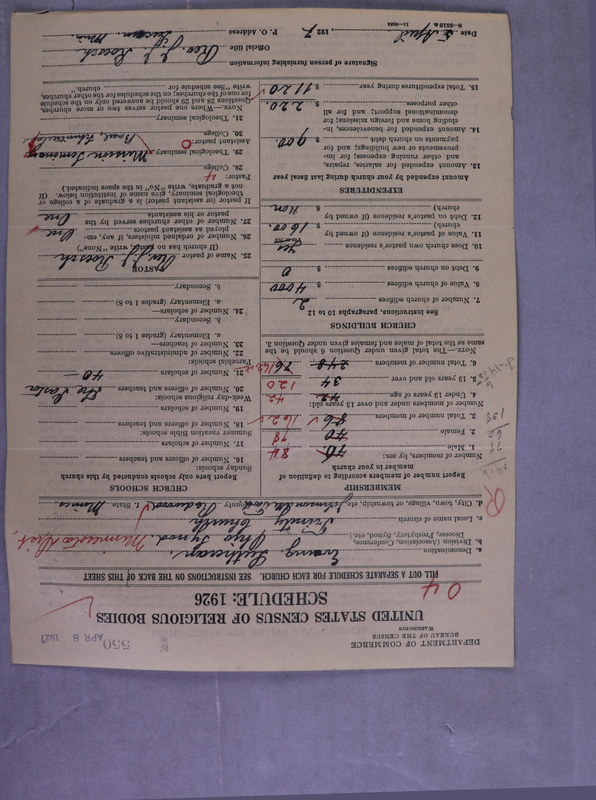 DEPARTMENT OF COMMERCE
BUREAU OF THE CENSUS
WASHINGTON
550 APR 8 1927
UNITED STATES CENSUS OF RELIGIOUS BODIES
SCHEDULE: 1926
04
FILL OUT A SEPARATE SCHEDULE FOR EACH CHURCH. SEE INSTRUCTIONS ON THE BACK OF THIS SHEET
a. Denomination Evang. Lutheran
b. Division (Association, Conference, Diocese, Presbytery, Synod, etc.) Ohio Synod. Minnesota Dist.
c. Local name of church Trinity Church
d. City, town, village, or township, etc. Johnsonville County Redwood State Minn.
MEMBERSHIP
Report number of members according to definition of
member in your church
Number of members, by sex:
1. Male 84
2. Female 40 78
3. Total number of members 86 162
Number of members under and over 13 years old:
4. Under 13 years of age 42 42
5. 13 years old and over 34 120
6. Total number of members 248 76 162
NOTE.—The total given under Question 6 should be the
same as the total of males and females given under Question 3.
CHURCH BUILDINGS
See instructions, paragraphs 10 to 12
7. Number of church edifices 2
8. Value of church edifices $ 4000
9. Debt on church edifices $ 0
10. Does own church pastor's residence yes
11. Value of pastor's residence (if owned by
church) $ 1600
12. Debt on pastor's residence (if owned by
church) $ non
EXPENDITURES
Amount expended by your church during last fiscal year
13. Amount expended for salaries, repairs,
and other running expenses; for im-
provements or new buildings; and for
payments on church debt $ 900.
14. Amount expended for benevolences, in-
cluding home and foreign missions; for
denominational support; and for all
other purposes $ 220.
15. Total expenditures during year $ 1120
CHURCH SCHOOLS
Report here only schools conducted by this church
Sunday schools:
16. Number of officers and teachers
17. Number of scholars
Summer vacation Bible schools:
18. Number of officers and teachers
19. Number of scholars
Week-day religious schools:
20. Number of officers and teachers The Pastor
21. Number of scholars 40
Parochial schools:
22. Number of administrative officers
23. Number of teachers—
a. Elementary (grades 1 to 8)
b. Secondary
24. Number of scholars—
a. Elementary (grades 1 to 8)
b. Secondary
PASTOR
25. Name of pastor Rev. J. J. Roesch
(If church has no pastor, write "None")
26. Number of ordained ministers, if any, em-
ployed as assistant pastors One
27. Number of other churches served by the
pastor or his assistants One
If pastor (or assistant pastor) is a graduate of a college or
theological seminary, give name of institution below. (If
not a graduate, write "No" in the space indicated.)
Pastor: 4
28. College
29. Theological seminary Mission Seminary
Assistant pastor: 0
30. College
31. Theological seminary
NOTE.—Where pastor serves two or more churches,
Questions 25 and 29 should be answered only on the schedule
for one of the churches; on the schedules for the other churches,
write "See schedule for church."
Signature of person furnishing information
Official title Rev. J. J. Roesch
P. O. Address Minn.
Date 5 April 1927
8—5518 a